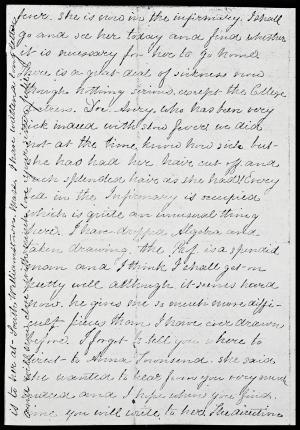 fever. She is now in the infirmary. I shall
go and see her today and find whether
it is necessary for her to go home
There is a great deal of sickness now
though nothing serious except the College
fevers. Avery, who has been very
sick indeed with slow fever we did
not at the time know how sick but
she has had her hair cut off and
such splendid hair as she had! Every
bed in the Infirmary is occupied
which is quite an unusual thing
here. I have dropped Algebra and
taken drawing. the Prof is a splendid
man and I think I shall get on
pretty well although it seems hard
now. he gives me so much more diffi-
cult pieces than I have ever drawn
before. I forgot to tell you where to
direct to Anna Townsend. she said
she wanted to hear from you very much
indeed and I hope when you find
time you will write to her. The direction
is to her at South Williamstown, Mass. I have written a long letter